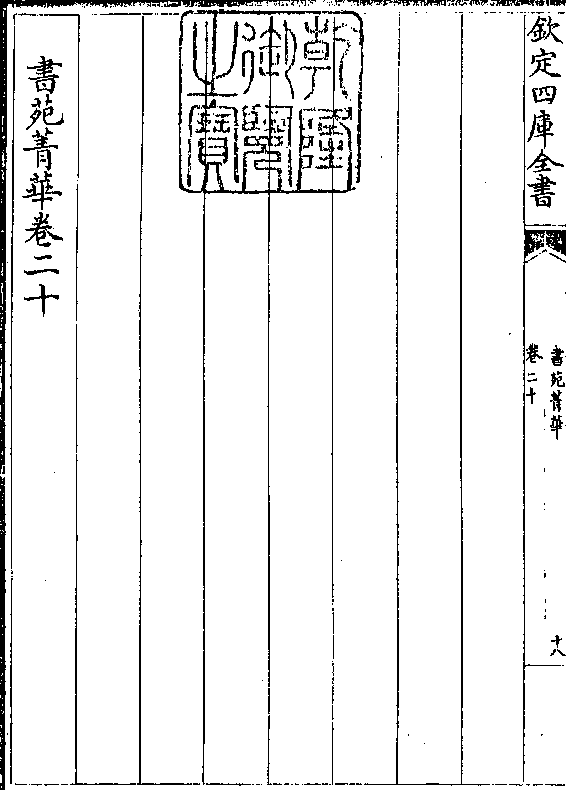 欽定四庫全書
書苑菁華
卷二十
十八
乾隆御覽之寶
書苑菁華卷二十